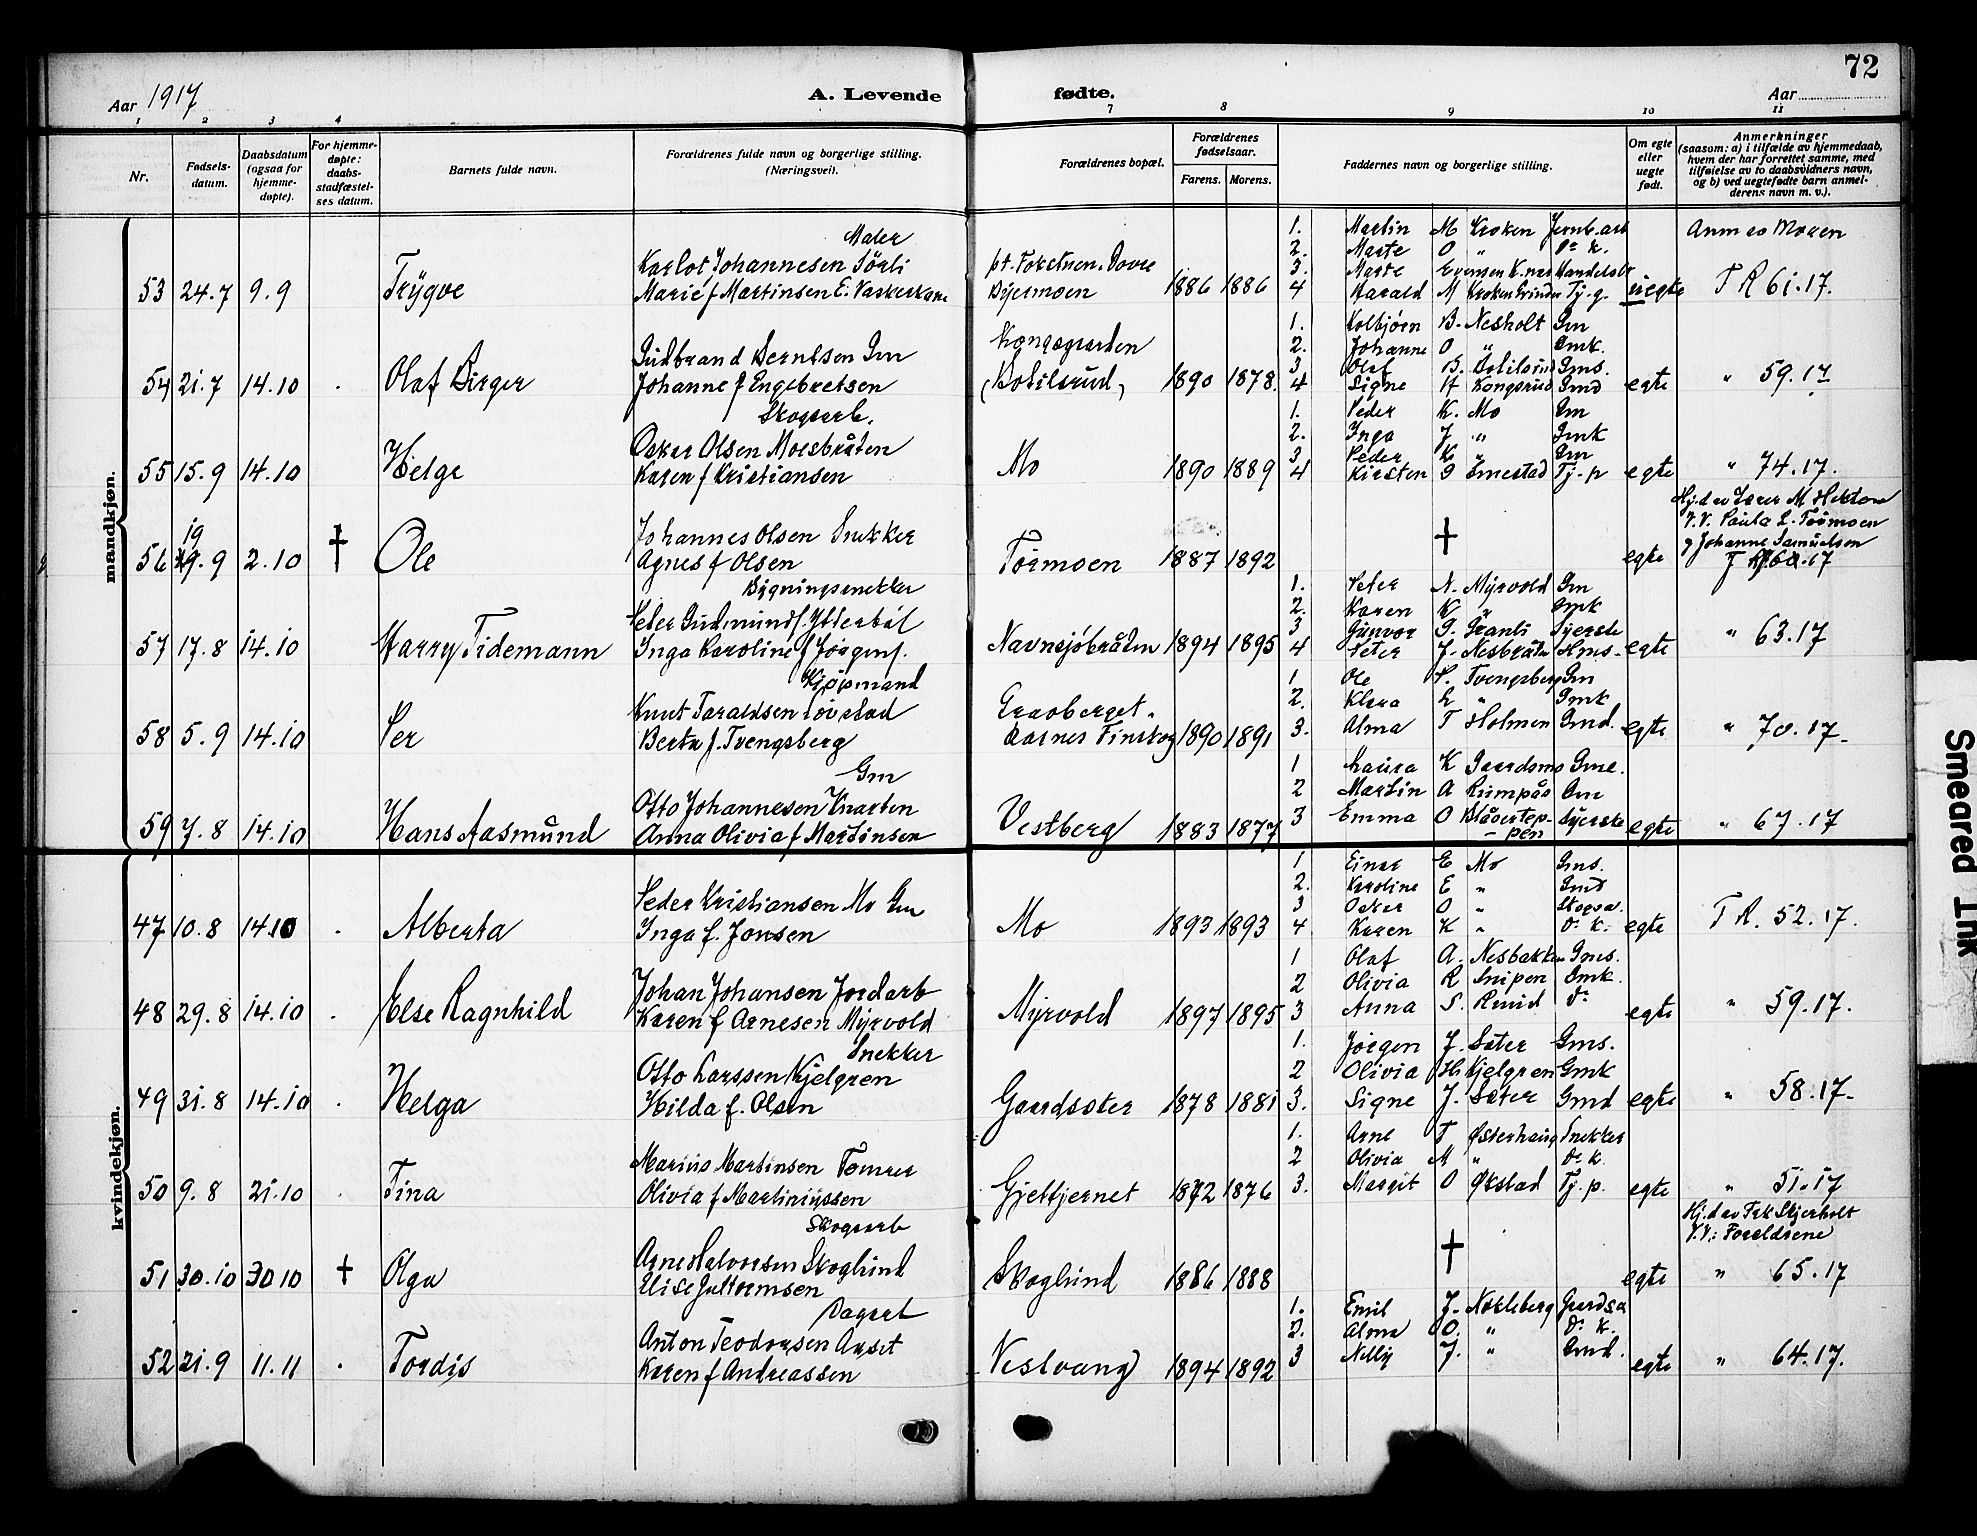 72
Aar 1917
A. Levende
fødte.
Aar
1 2 3 4 7 8 9 10 11
Nr.
Fødsels-
datum.
Daabsdatum
(ogsaa for
hjemme-
døpte).
For hjemme-
døpte:
daabs-
stadfæstel-
ses datum.
Barnets fulde navn.
Forældrenes fulde navn og borgerlige stilling.
(Næringsvei).
Forældrenes bopæl.
Forældrenes
fødselsaar.
Farens. Morens.
Faddernes navn og borgerlige stilling.
Om egte
eller
uegte
født.
Anmerkninger
(saasom: a) i tilfælde av hjemmedaab,
hvem der har forrettet samme, med
tilføielse av to daabsvidners navn,
og b) ved uegtefødte barn anmel-
derens navn m. v.).
mandkjøn.
53 24.7 9.9 Trygve
Maler
Karlot Johannesen Sörli
Marie f Martinsen E.
pt. Fokstuen. Dovre
1886 1886
1. Martin M Kroken Jernb. arb
2. Marte O " Do k.
3. Marte
4 Harald M Kroken Tj. g.
uegte
Anm av Moren
T R 61.17.
54 21.7 14.10 . Olaf Birger
Gudbrand Berntsen Gm
Johanne f Engebretsen
Kongsgaarden
(Botilsrud)
1890 1878.
1. Kolbjörn B. Nesholt Gm
2. Johanne O " Gmk.
3 Olaf B. Botilsrud Gms.
4 Signe H Kongsrud Gmd
egte
" 59.17
55 15.9 14.10 Helge
Skogsarb.
Oskar Olsen Moesbråten
Karen f Kristiansen
Mo
1890 1889
1. Peder K. Mo Gm
2. Inga J " Gmk
3 Peder K " Gm
4 Kirsten G Ernestad Tj. p
egte
" 74.17.
56 19.9 2.10 † Ole
Johannes Olsen Snekker
Agnes f Olsen
Törmoen
1887 1892
†
egte
Hj.d av Lærer M Hekton
V.V. Paula L. Törmoen
og Johanne Samuelsen
60.17
57 17.8 14.10 Harry Tidemann
Bygningssnekker
Peder Gudmundf. Ytterböl
Inga Karoline f Jörgensf.
Navnsjöbråten
1894 1895
1. Peter N. Myrvold Gm
2. Karen K " Gmk
3 Gunvor P. Granli Syerske
4 Peter J. Nesbråten Hms.
egte
" 63.17
58 5.9 14.10 Per
Kjöpmand
Knut Taraldsen Lövstad
Berta f. Tvengsberg
Graaberget.
Aasnes Finskog
1890 1891
1 Ole P. Tvengsberg Gm
2. Klara L " Gmk
3. Alma T Holmen Gmd.
egte
" 70.17
59 7.8 14.10 Hans Aasmund
Gm
Otto Johannesen Knarten
Anna Olivia f Martinsen
Vestberg
1883 1877
1 Laura K Gaardsmo Gme.
2 Martin A Rumpås Gm
3 Emma O Blåvertep-
pen Syerske
egte
" 67.17
kvindekjøn.
47 10.8 14.10 . Alberta
Peder Kristiansen Mo Gm
Inga f. Jonsen
Mo
1893 1893
1 Einar E Mo Gms.
2. Karoline E " Gmd
3 Oskar O " Skogsa.
4 Karen K " Do k.
egte
T R. 52.17.
48 29.8 14.10 . Else Ragnhild
Johan Johansen Jordarb
Karen f Arnesen Myrvold
Myrvold
1897 1895
1 Olaf A. Nesbakken Gms.
2 Olivia R Snipen Gmk.
3 Anna S. Ruud Do
egte
" 59.17.
49 31.8 14.10 . Helga
Snekker
Otto Larssen Kjelgren
Hilda f. Olsen
Gaardsæter
1878 1881
1. Jörgen J. Sæter Gms.
2 Olivia H Kjelgren Gmk
3. Signe J. Sæter Gmd
egte
" 58.17.
50 9.8 21.10 . Tina
Marius Martinsen Tömrer
Olivia f Martiniussen
Gjettjernet
1872 1876
1. Arne T Österhaug Snekker
2 Olivia M " Do k.
3. Margit O Økstad Tj. p.
egte
" 51.17
51 30.10 30 10 † Olga
Skogsarb
Arne Halvorsen Skoglund
Elise Guttormsen
Skoglund
1886 1888
†
egte
Hj.d av Frk Skjerholt
V.V: Foreldrene
" 65.17
52 21.9 11.11 . Tordis
Dagarb
Anton Teodorsen Aaset
Karen f Andreassen
Vestvang
1894 1892
1. Emil J. Nökleberg Gaardsa
2. Alma O. " Do k.
3 Nelly J. " Gmd.
egte
" 64.17.
Smeared Ink